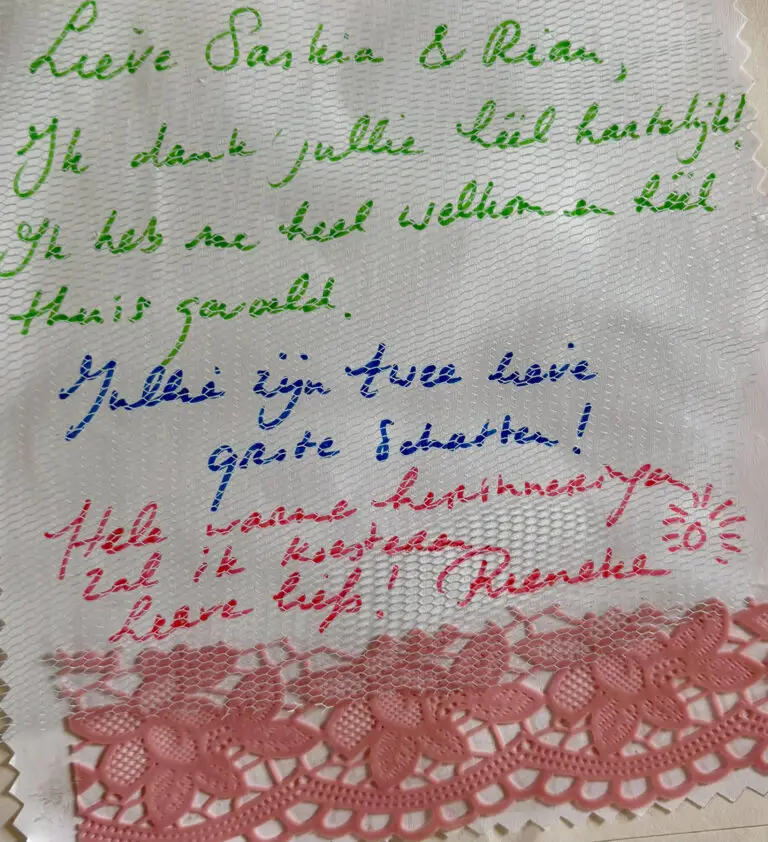 Lieve Saskia & Rian,
Ik dank jullie héél hartelijk!
Ik heb me heel welkom en héél
thuis gevoeld.
Jullie zijn twee lieve
grote Schatten!
Hele warme herinneringen
zal ik koesteren
Lieve liefs! Rieneke